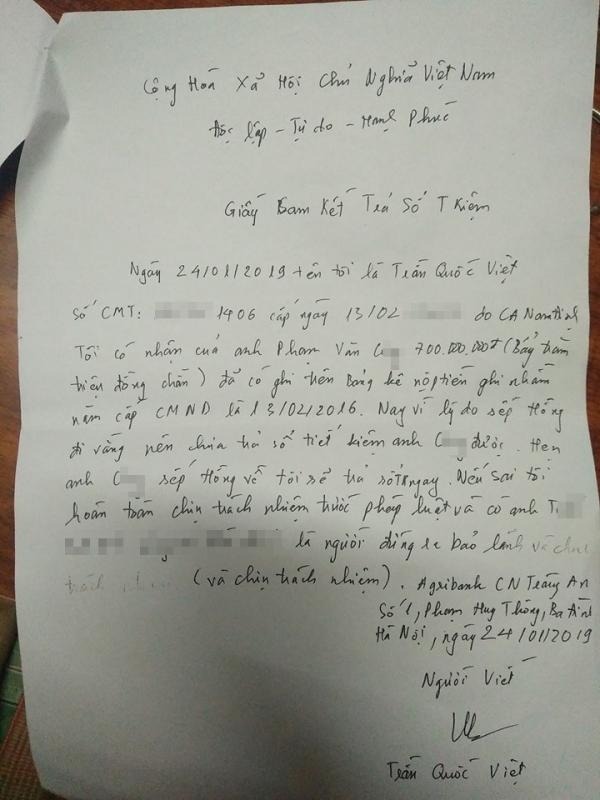 Cộng Hoà Xã Hội Chủ Nghĩa Việt Nam
Độc lập - Tự do - Hạnh Phúc
Giấy Cam Kết Trả Sổ T Kiệm
Ngày 24/01/2019 tên tôi là Trần Quốc Việt
Số CMT: 1406 cấp ngày 13/02 do CA Nam Định
Tôi có nhận của anh Phạm Văn C g 700.000.000đ (Bẩy trăm
triệu đồng chẵn) đã có ghi trên bảng kê nộp tiền ghi nhầm
năm cấp CMND là 13/02/2016. Nay vì lý do sếp Hồng
đi vắng nên chưa trả sổ tiết kiệm anh C g được. Hẹn
anh C g sếp Hồng về tôi sẽ trả sổ ngay. Nếu sai tôi
hoàn toàn chịu trách nhiệm trước pháp luật và có anh T
là người đứng ra bảo lãnh và chịu
trách nhiệm (và chịu trách nhiệm). Agribank CN Tràng An
Số 1, Phạm Huy Thông, Ba Đình
Hà Nội, ngày 24/01/2019
Người Viết
Trần Quốc Việt